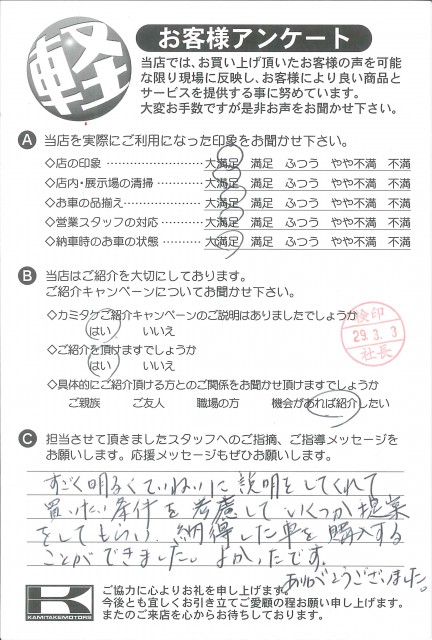 軽
お客様アンケート
当店では、お買い上げ頂いたお客様の声を可能
な限り現場に反映し、お客様により良い商品と
サービスを提供する事に努めています。
大変お手数ですが是非お声をお聞かせ下さい。
A 当店を実際にご利用になった印象をお聞かせ下さい。
◇店の印象 ……………………… 大満足 満足 ふつう やや不満 不満
◇店内・展示場の清掃 ………… 大満足 満足 ふつう やや不満 不満
◇お車の品揃え ………………… 大満足 満足 ふつう やや不満 不満
◇営業スタッフの対応 ………… 大満足 満足 ふつう やや不満 不満
◇納車時のお車の状態 ………… 大満足 満足 ふつう やや不満 不満
B 当店はご紹介を大切にしております。
ご紹介キャンペーンについてお聞かせ下さい。
◇カミタケご紹介キャンペーンのご説明はありましたでしょうか
はい いいえ
◇ご紹介を頂けますでしょうか
はい いいえ
◇具体的にご紹介頂ける方とのご関係をお聞かせ頂けますでしょうか
ご親族 ご友人 職場の方 機会があれば紹介したい
検印
29.3.3
社長
C 担当させて頂きましたスタッフへのご指摘、ご指導メッセージを
お願いします。応援メッセージもぜひお願いします。
すごく明るくていねいに説明をしてくれて
買いたい条件を考慮していくつか提案
をしてもらい、納得した車を購入する
ことができました。よかったです。
ありがとうございました。
K
KAMITAKEMOTORS
ご協力に心よりお礼を申し上げます。
今後とも宜しくお引き立てご愛顧の程お願い申し上げます。
またのご来店を心からお待ちしております。